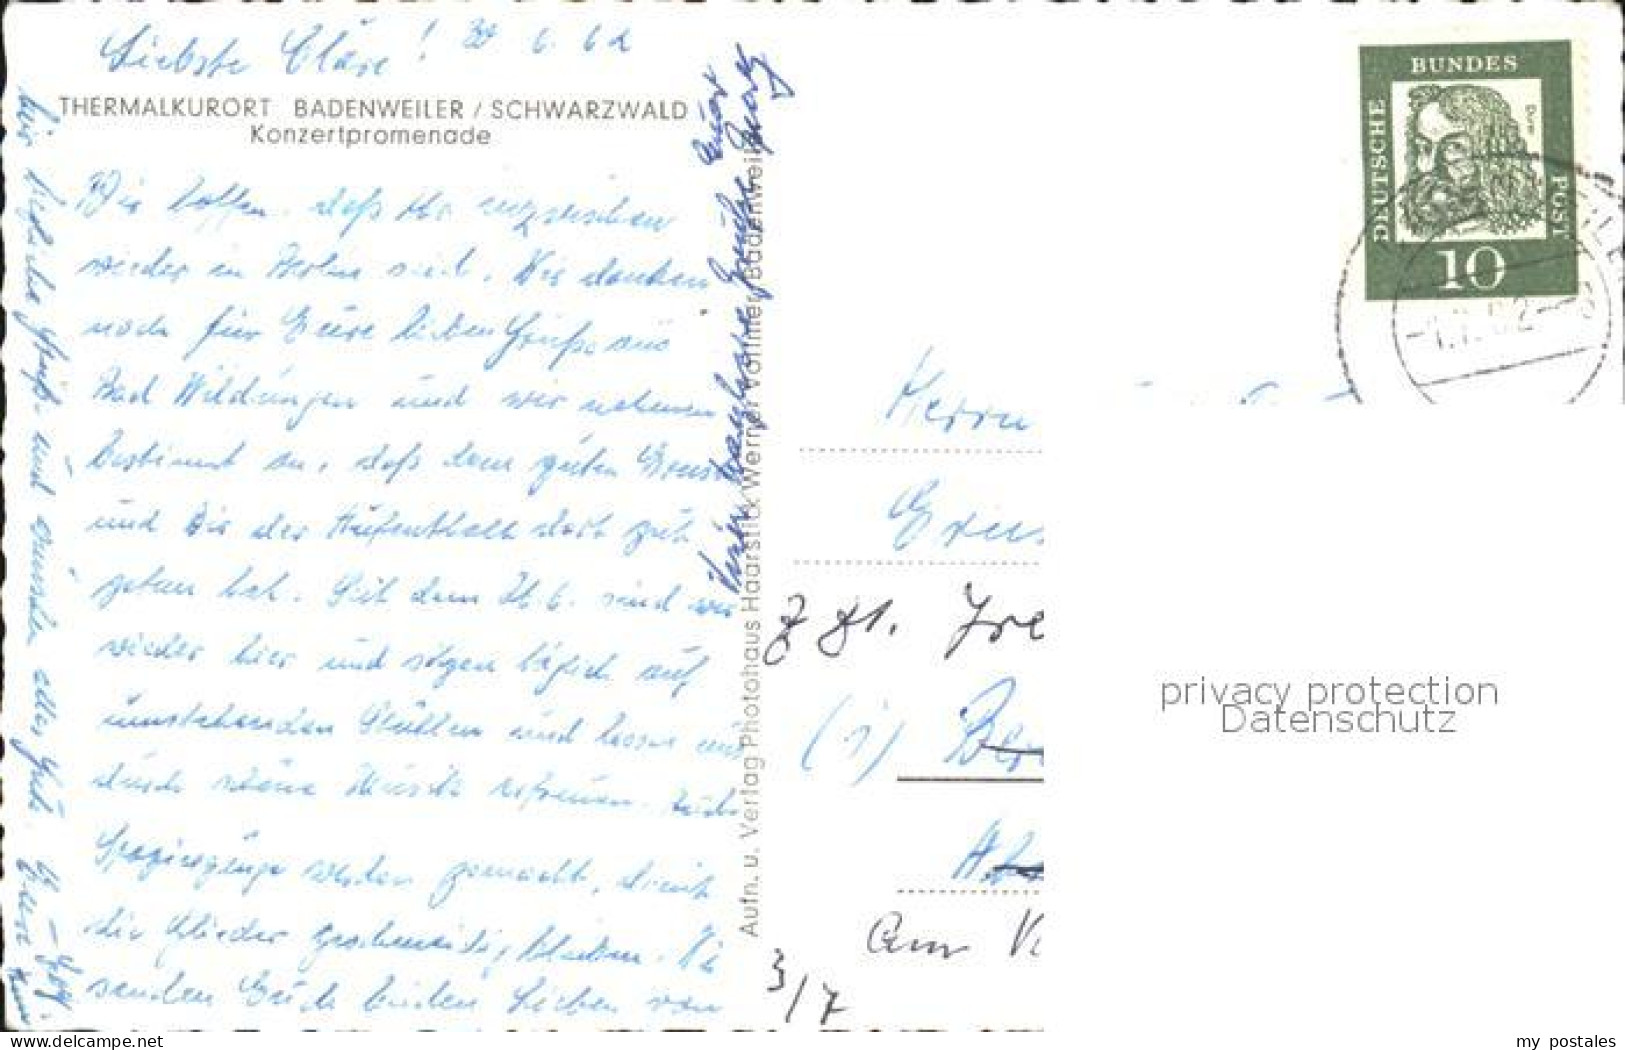 Liebste Cläre! 30 6. 62
THERMALKURORT BADENWEILER / SCHWARZWALD
Konzertpromenade
Wir hoffen, daß Ihr inzwischen
wieder in Berlin seid. Wir danken
noch für Eure lieben Grüße aus
Bad Wildungen und wir nehmen
bestimmt an, daß dem guten Ernst
und Dir der Aufenthalt dort gut
getan hat. Seit dem 26.6. sind wir
wieder hier und sitzen täglich auf
umstehenden Stühlen und lassen uns
durch schöne Musik erfreuen. Auch
Spaziergänge werden gemacht, damit
die Glieder geschmeidig bleiben. Wir
senden Euch beiden Lieben von
hier herzliche Grüße und wünschen alles Gute.
Viele herzliche Grüße Euer
Aufn. u. Verlag Photohaus Haarstick Werner Vollmer, Badenweiler
BUNDES
DEUTSCHE
POST
Dürer
10
Herrn
Z Zt.
(1)
Am
3/7
privacy protection
Datenschutz
www.delcampe.net
my_postales